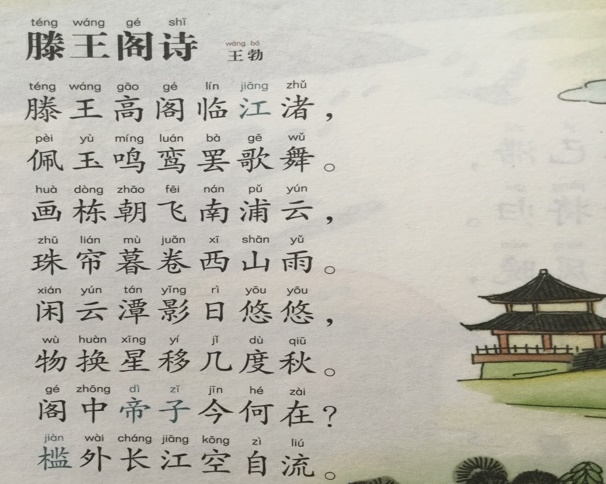 téng wáng gé shī
滕王阁诗
wáng bó
王勃
téng wáng gāo gé lín jiāng zhǔ
滕王高阁临江渚，
pèi yù míng luán bà gē wǔ
佩玉鸣鸾罢歌舞。
huà dòng zhāo fēi nán pǔ yún
画栋朝飞南浦云，
zhū lián mù juǎn xī shān yǔ
珠帘暮卷西山雨。
xián yún tán yǐng rì yōu yōu
闲云潭影日悠悠，
wù huàn xīng yí jǐ dù qiū
物换星移几度秋。
gé zhōng dì zǐ jīn hé zài
阁中帝子今何在？
jiàn wài cháng jiāng kōng zì liú
槛外长江空自流。